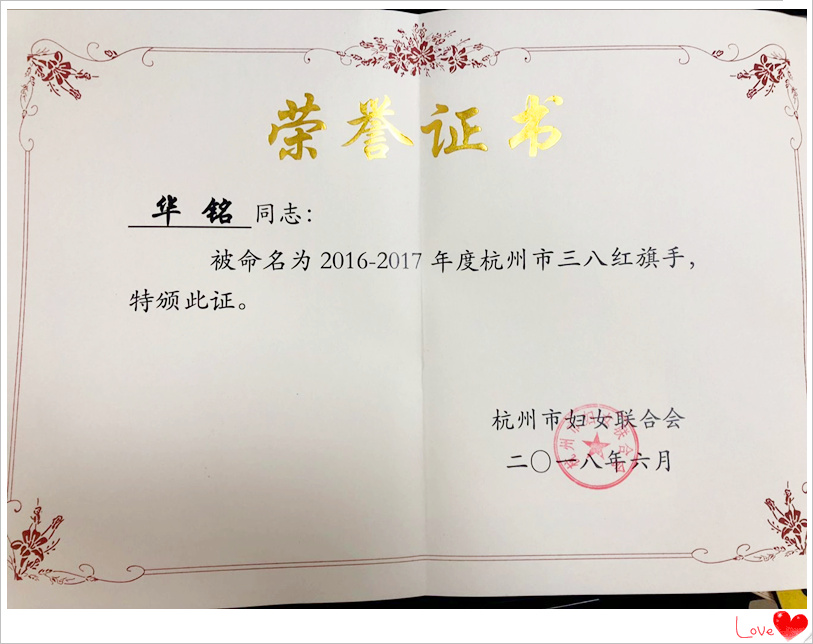 荣誉证书
华铭 同志：
被命名为 2016-2017 年度杭州市三八红旗手，
特颁此证。
杭州市妇女联合会
二〇一八年六月
杭州市妇女联合会
Love